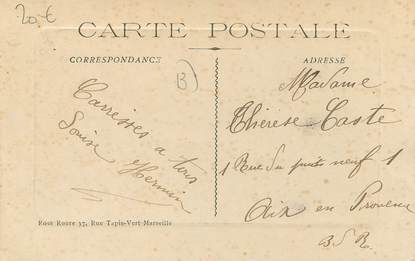 20 €
CARTE POSTALE
CORRESPONDANCE
ADRESSE
B
Carresses a tous
Louise Hermin
Madame
Thérèse Caste
1 Rue du puits neuf 1
Aix en Provence
B d R.
Rose Roure 37, Rue Tapis-Vert Marseille